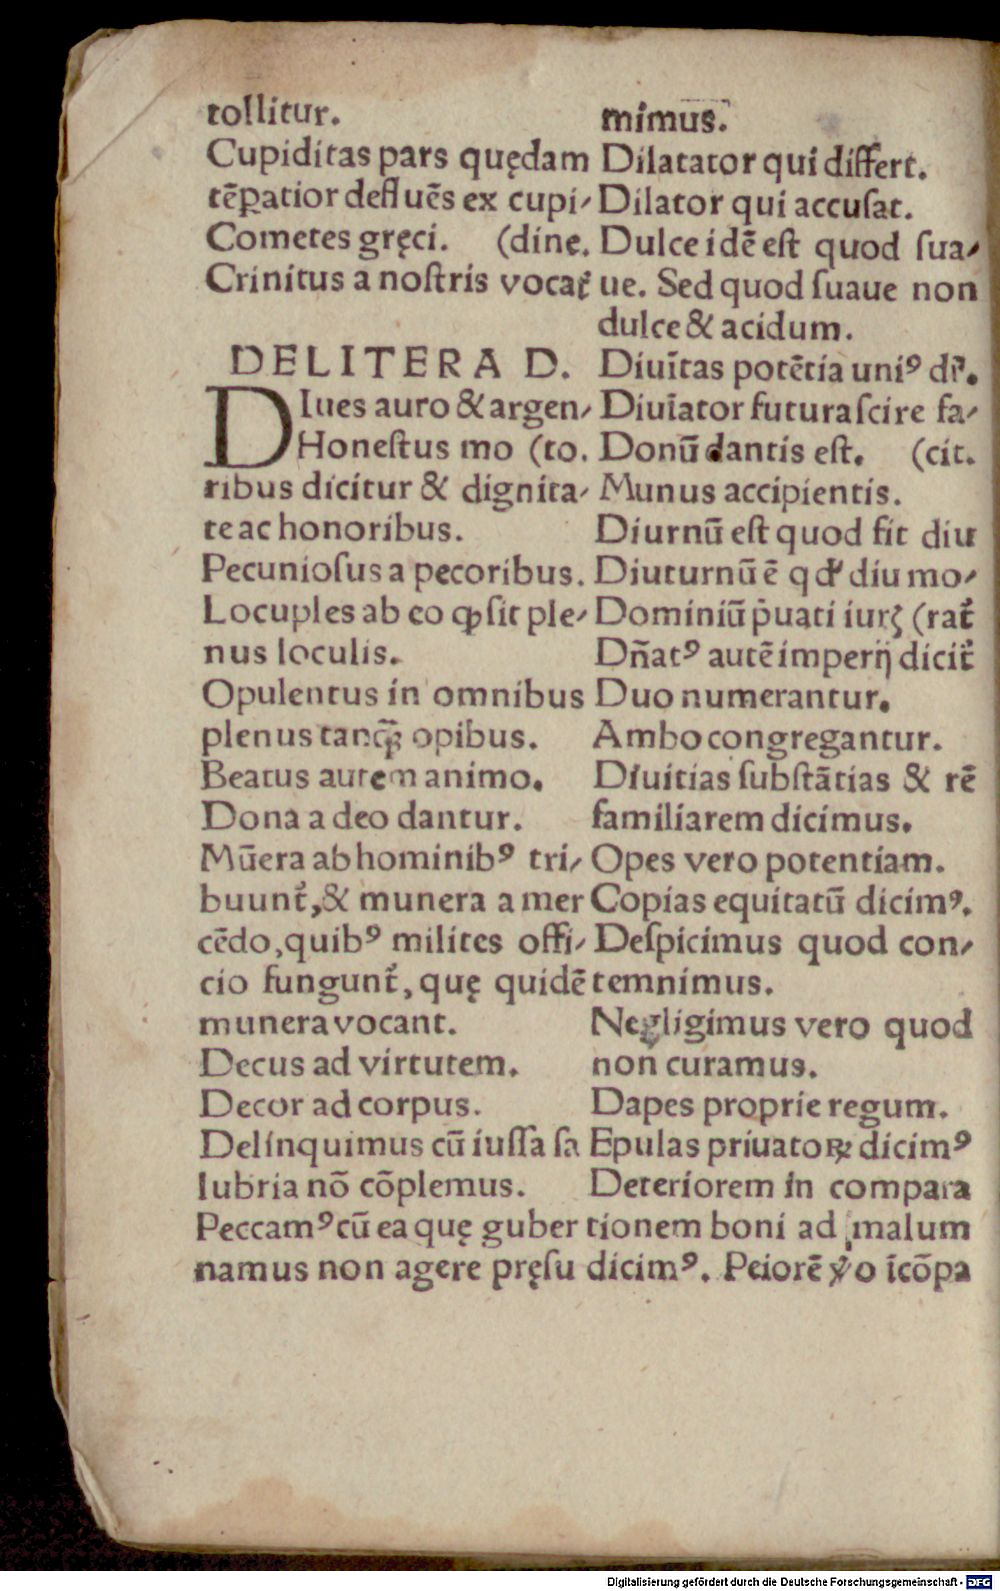 tollitur.
Cupiditas pars quędam
tēꝑatior defluēs ex cupi-
Cometes gręci. (dine.
Crinitus a nostris vocat᷑
DE LITERA D.
DIues auro & argen-
Honestus mo (to.
ribus dicitur & dignita-
te ac honoribus.
Pecuniosus a pecoribus.
Locuples ab eo ꝙ sit ple-
nus loculis.
Opulentus in omnibus
plenus tanꝙ̄ opibus.
Beatus autem animo.
Dona a deo dantur.
Mūera ab hominibꝰ tri-
buunt᷑, & munera a mer
cēdo, quibꝰ milites offi-
cio fungunt᷑, quę quidē
munera vocant.
Decus ad virtutem.
Decor ad corpus.
Delinquimus cū iussa sa
lubria nō cōplemus.
Peccamꝰ cū ea quę guber
namus non agere pręsu
mimus.
Dilatator qui differt.
Dilator qui accusat.
Dulce idē est quod sua-
ue. Sed quod suaue non
dulce & acidum.
Diuītas potētia uniꝰ dr̄.
Diuīator futura scire fa-
Donū dantis est. (cit.
Munus accipientis.
Diurnū est quod fit diu
Diuturnū ē qđ diu mo-
Dominiū p̓uati iurꝭ (rat᷑
Dñatꝰ autē imperij dicit᷑
Duo numerantur.
Ambo congregantur.
Diuitias substātias & rē
familiarem dicimus.
Opes vero potentiam.
Copias equitatū dicimꝰ.
Despicimus quod con-
temnimus.
Negligimus vero quod
non curamus.
Dapes proprie regum.
Epulas priuatoꝝ dicimꝰ
Deteriorem in compara
tionem boni ad malum
dicimꝰ. Peiorē v̓o īcōpa
Digitalisierung gefördert durch die Deutsche Forschungsgemeinschaft - DFG